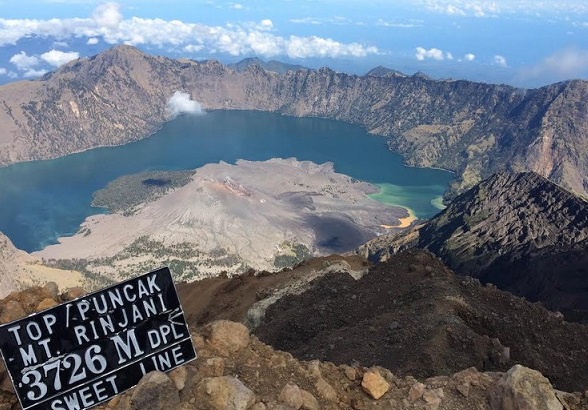 TOP/PUNCAK
MT. RINJANI
3726 M DPL
SWEET LINE